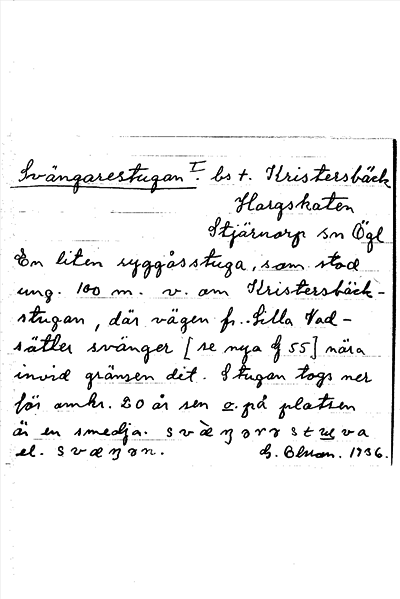 Svängarestugan I. bst. Kristersbäck
Hargskaten
Stjärnorp sn Ögl
En liten ryggåsstuga, som stod
ung. 100 m. v. om Kristersbäck-
stugan, där vägen fr. Lilla Vad-
sätter svänger [se nya G 55] nära
invid gränsen dit. Stugan togs ner
för omkr. 20 år sen o. på platsen
är en smedja. svæŋarstuva
el. svæŋən. G. 1936.